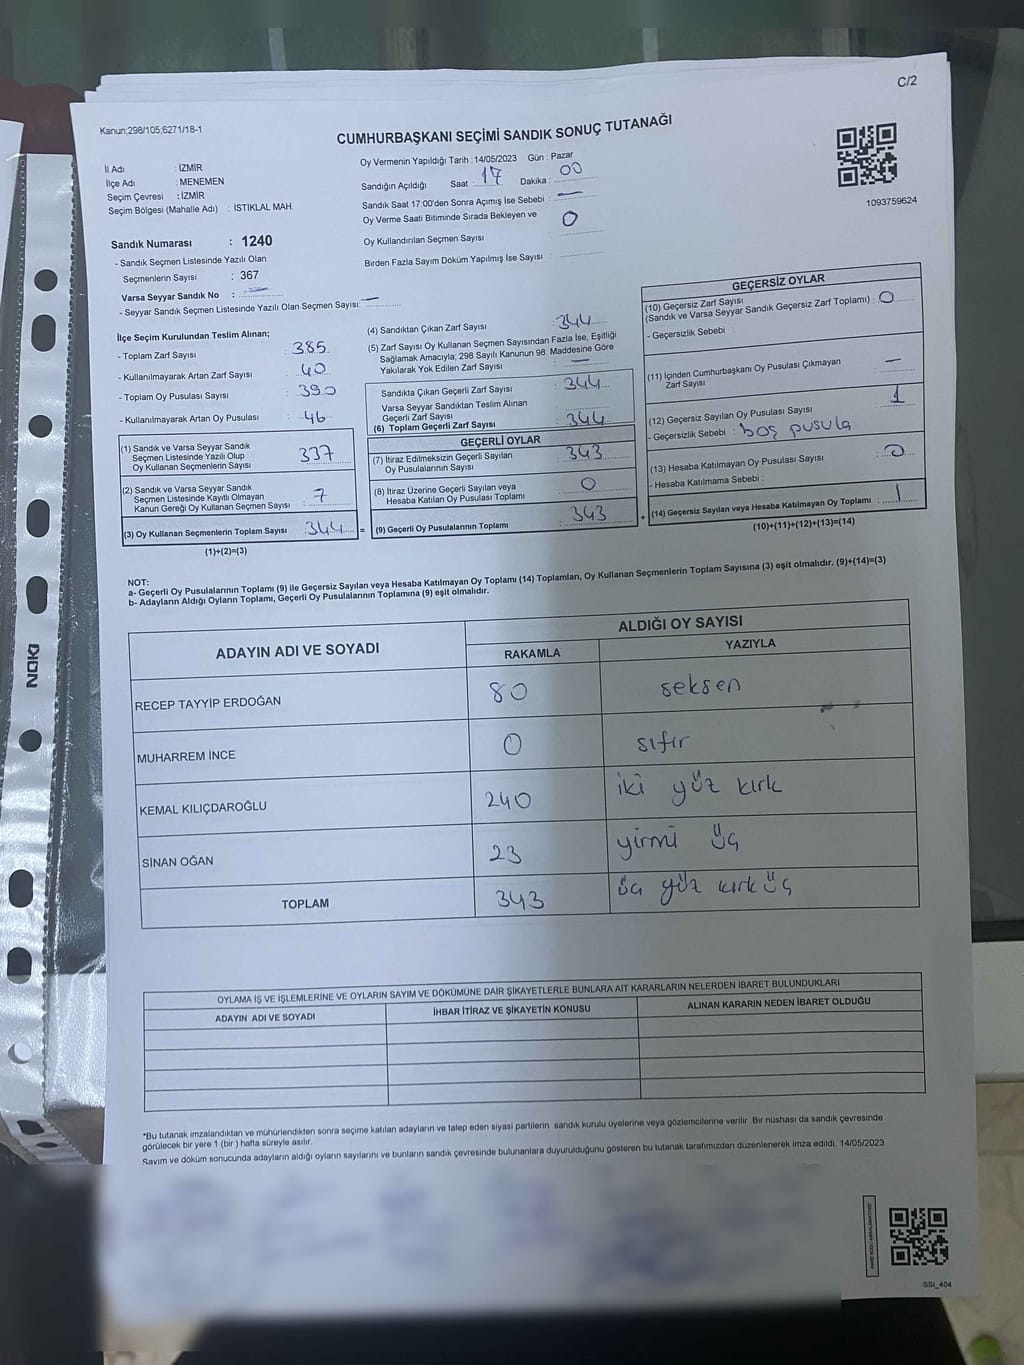 C/2
Kanun;298/105;6271/18-1
CUMHURBAŞKANI SEÇİMİ SANDIK SONUÇ TUTANAĞI
İl Adı : İZMİR
İlçe Adı : MENEMEN
Seçim Çevresi : İZMİR
Seçim Bölgesi (Mahalle Adı) : İSTİKLAL MAH.
Oy Vermenin Yapıldığı Tarih :14/05/2023 Gün : Pazar
Sandığın Açıldığı Saat : 17 Dakika : 00
Sandık Saat 17:00'den Sonra Açımış İse Sebebi : —
Oy Verme Saati Bitiminde Sırada Bekleyen ve
Oy Kullandırılan Seçmen Sayısı : 0
Birden Fazla Sayım Döküm Yapılmış İse Sayısı
1093759624
Sandık Numarası : 1240
- Sandık Seçmen Listesinde Yazılı Olan
Seçmenlerin Sayısı : 367
Varsa Seyyar Sandık No : —
- Seyyar Sandık Seçmen Listesinde Yazılı Olan Seçmen Sayısı: —
İlçe Seçim Kurulundan Teslim Alınan;
- Toplam Zarf Sayısı : 385
- Kullanılmayarak Artan Zarf Sayısı : 40
- Toplam Oy Pusulası Sayısı : 390
- Kullanılmayarak Artan Oy Pusulası : 46
(1) Sandık ve Varsa Seyyar Sandık
Seçmen Listesinde Yazılı Olup
Oy Kullanan Seçmenlerin Sayısı : 337
(2) Sandık ve Varsa Seyyar Sandık
Seçmen Listesinde Kayıtlı Olmayan
Kanun Gereği Oy Kullanan Seçmen Sayısı : 7
(3) Oy Kullanan Seçmenlerin Toplam Sayısı : 344 =
(1)+(2)=(3)
(4) Sandıktan Çıkan Zarf Sayısı : 344
(5) Zarf Sayısı Oy Kullanan Seçmen Sayısından Fazla İse, Eşitliği
Sağlamak Amacıyla; 298 Sayılı Kanunun 98. Maddesine Göre
Yakılarak Yok Edilen Zarf Sayısı : —
Sandıkta Çıkan Geçerli Zarf Sayısı : 344
Varsa Seyyar Sandıktan Teslim Alınan
Geçerli Zarf Sayısı
(6) Toplam Geçerli Zarf Sayısı : 344
GEÇERLİ OYLAR
(7) İtiraz Edilmeksizin Geçerli Sayılan
Oy Pusulalarının Sayısı : 343
(8) İtiraz Üzerine Geçerli Sayılan veya
Hesaba Katılan Oy Pusulası Toplamı : 0
(9) Geçerli Oy Pusulalarının Toplamı : 343 +
GEÇERSİZ OYLAR
(10) Geçersiz Zarf Sayısı
(Sandık ve Varsa Seyyar Sandık Geçersiz Zarf Toplamı) : 0
- Geçersizlik Sebebi :
(11) İçinden Cumhurbaşkanı Oy Pusulası Çıkmayan
Zarf Sayısı : —
(12) Geçersiz Sayılan Oy Pusulası Sayısı : 1
- Geçersizlik Sebebi : boş pusula
(13) Hesaba Katılmayan Oy Pusulası Sayısı : 0
- Hesaba Katılmama Sebebi :
(14) Geçersiz Sayılan veya Hesaba Katılmayan Oy Toplamı : 1
(10)+(11)+(12)+(13)=(14)
NOT:
a- Geçerli Oy Pusulalarının Toplamı (9) ile Geçersiz Sayılan veya Hesaba Katılmayan Oy Toplamı (14) Toplamları, Oy Kullanan Seçmenlerin Toplam Sayısına (3) eşit olmalıdır. (9)+(14)=(3)
b- Adayların Aldığı Oyların Toplamı, Geçerli Oy Pusulalarının Toplamına (9) eşit olmalıdır.
ADAYIN ADI VE SOYADI
ALDIĞI OY SAYISI
RAKAMLA YAZIYLA
RECEP TAYYİP ERDOĞAN 80 seksen
MUHARREM İNCE 0 sıfır
KEMAL KILIÇDAROĞLU 240 iki yüz kırk
SİNAN OĞAN 23 yirmi üç
TOPLAM 343 üç yüz kırk üç
OYLAMA İŞ VE İŞLEMLERİNE VE OYLARIN SAYIM VE DÖKÜMÜNE DAİR ŞİKAYETLERLE BUNLARA AİT KARARLARIN NELERDEN İBARET BULUNDUKLARI
ADAYIN ADI VE SOYADI İHBAR İTİRAZ VE ŞİKAYETİN KONUSU ALINAN KARARIN NEDEN İBARET OLDUĞU
*Bu tutanak imzalandıktan ve mühürlendikten sonra seçime katılan adayların ve talep eden siyasi partilerin sandık kurulu üyelerine veya gözlemcilerine verilir. Bir nüshası da sandık çevresinde
görülecek bir yere 1 (bir) hafta süreyle asılır.
Sayım ve döküm sonucunda adayların aldığı oyların sayılarını ve bunların sandık çevresinde bulunanlara duyurulduğunu gösteren bu tutanak tarafımızdan düzenlenerek imza edildi. 14/05/2023
SSI_404
NOKI